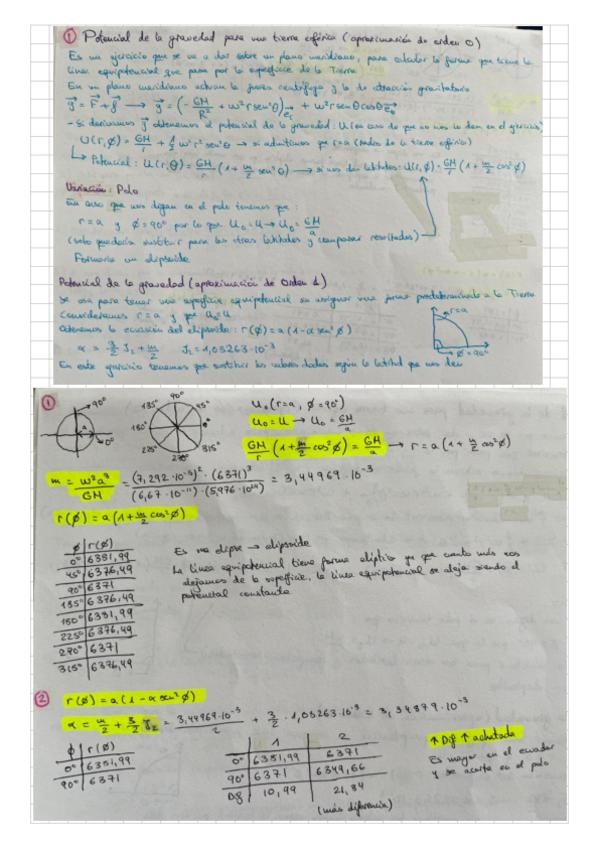 ① Potencial de la gravedad para una tierra esférica (aproximación de orden 0)
Es un ejercicio que se va a dar sobre un plano meridiano, para calcular la forma que tiene la
línea equipotencial que pasa por la superficie de la Tierra
En un plano meridiano actúan la fuerza centrífuga y la de atracción gravitatoria
g⃗ = F⃗ + f⃗ → g⃗ = (-GM/R² + ω²r sen²θ) e⃗r + ω²r senθ cosθ e⃗θ
- Si derivamos g⃗ obtenemos el potencial de la gravedad: U (en caso de que no nos lo den en el ejercicio)
U(r,θ) = GM/r + 1/2 ω²r² sen²θ → si admitimos que r=a (radio de la tierra esférica)
Potencial: U(r,θ) = GM/r (1 + m/2 sen²θ) → si nos dan latitudes: U(r,ϕ) = GM/r (1 + m/2 cos²ϕ)
Variación: Polo
En caso que nos digan en el polo tenemos que:
r=a y ϕ=90° por lo que U₀=U → U₀ = GM/a
(solo quedaría sustituir para las otras latitudes y comparar resultados)
Formaría un elipsoide
Potencial de la gravedad (aproximación de orden 1)
Se usa para tener una superficie equipotencial sin asignar una forma predeterminada a la Tierra
Consideramos r=a y que U₀=U
Obtenemos la ecuación del elipsoide: r(ϕ) = a(1-α sen²ϕ)
α = 3/2 J₂ + m/2 J₂ = 1,08263·10⁻³
r=a
ϕ=90°
En este ejercicio tenemos que sustituir los valores dados según la latitud que nos den
①
90°
a
0°
90°
135°
45°
180°
0°
225°
315°
270°
U₀(r=a, ϕ=90°)
U₀=U → U₀ = GM/a
GM/r (1 + m/2 cos²ϕ) = GM/a → r = a(1 + m/2 cos²ϕ)
m = ω²a³/GM = (7,292·10⁻⁵)²·(6371)³/(6,67·10⁻¹¹)·(5,976·10²⁴) = 3,44969·10⁻³
r(ϕ) = a(1 + m/2 cos²ϕ)
ϕ | r(ϕ)
0° | 6381,99
45° | 6376,49
90° | 6371
135° | 6376,49
180° | 6381,99
225° | 6376,49
270° | 6371
315° | 6376,49
Es una elipse → elipsoide
La línea equipotencial tiene forma elíptica ya que cuanto más nos
alejamos de la superficie, la línea equipotencial se aleja siendo el
potencial constante
② r(ϕ) = a(1 - α sen²ϕ)
α = m/2 + 3/2 J₂ = 3,44969·10⁻³/2 + 3/2 · 1,08263·10⁻³ = 3,34879·10⁻³
ϕ | r(ϕ)
0° | 6381,99
90° | 6371
1 | 2
0° | 6381,99 | 6371
90° | 6371 | 6349,66
Dif | 10,99 | 21,34
(más diferencia)
↑ Dif ↑ achatada
Es mayor en el ecuador
y se acorta en el polo